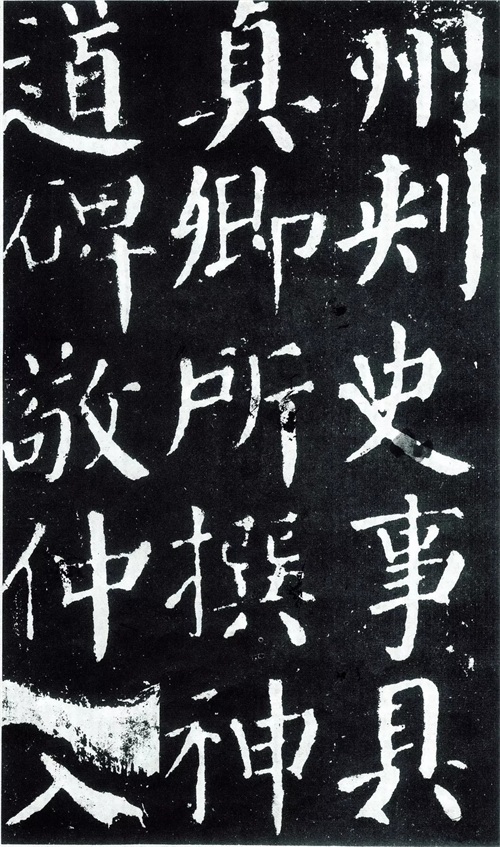 州刺史事具
真卿所撰神
道碑敬仲